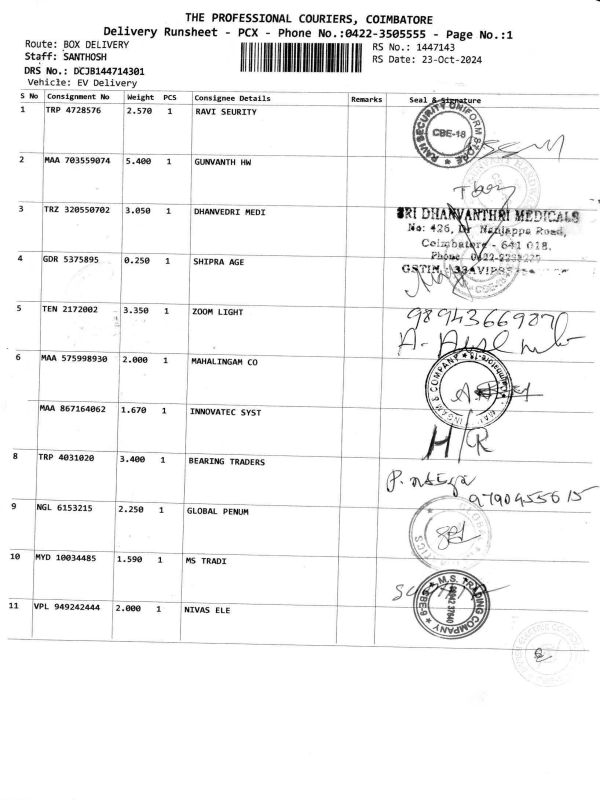 THE PROFESSIONAL COURIERS, COIMBATORE
Delivery Runsheet - PCX - Phone No.:0422-3505555 - Page No.:1
Route: BOX DELIVERY
RS No.: 1447143
Staff: SANTHOSH
RS Date: 23-Oct-2024
DRS No.: DCJB144714301
Vehicle: EV Delivery
S No Consignment No Weight PCS Consignee Details Remarks Seal & Signature
1 TRP 4728576 2.570 1 RAVI SEURITY
RAVI SECURITY UNIFORM STORE
CBE-18
2 MAA 703559074 5.400 1 GUNVANTH HW
3 TRZ 320550702 3.050 1 DHANVEDRI MEDI
SRI DHANVANTHRI MEDICALS
No: 426, Dr Nanjappa Road,
Coimbatore - 641 018.
Phone
GSTIN
4 GDR 5375895 0.250 1 SHIPRA AGE
5 TEN 2172002 3.350 1 ZOOM LIGHT
9894366987
6 MAA 575998930 2.000 1 MAHALINGAM CO
& COMPANY
MAA 867164062 1.670 1 INNOVATEC SYST
H/R
8 TRP 4031020 3.400 1 BEARING TRADERS
9790455615
9 NGL 6153215 2.250 1 GLOBAL PENUM
GLOBAL
10 MYD 10034485 1.590 1 MS TRADI
M.S. TRADING COMPANY
CBE-9
11 VPL 949242444 2.000 1 NIVAS ELE